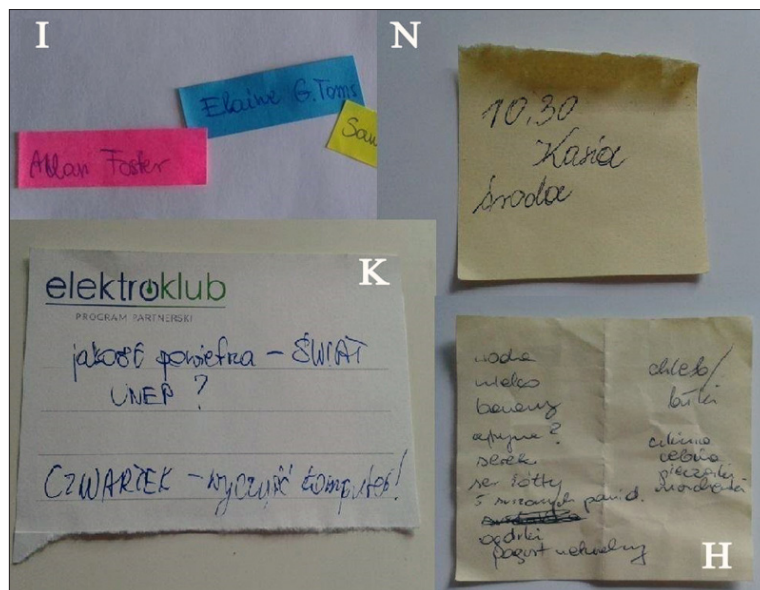 I
Elaine G. Toms
Allan Foster
Sau
N
10.30
Kasia
środa
K
elektroklub
PROGRAM PARTNERSKI
jakość powietrza – ŚWIAT
UNEP ?
CZWARTEK – wyczyść komputer!
H
woda
mleko
banany
?
serek
ser żółty
5 pomid.
jogurt naturalny
chleb/
bułki
cebula
pieczarki